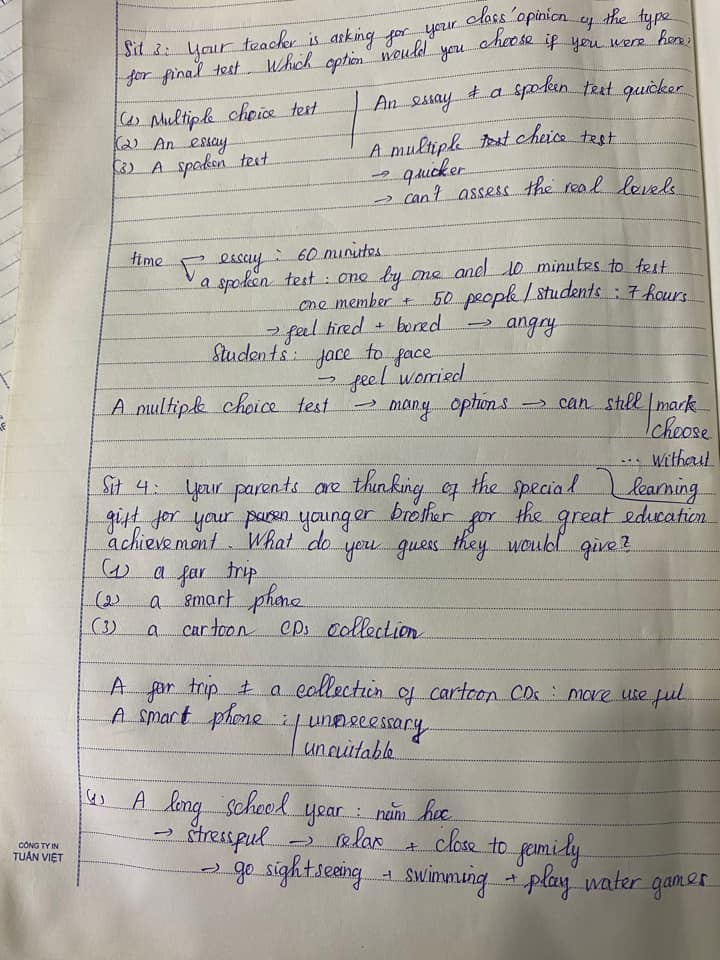 Sit 3: Your teacher is asking for your class' opinion of the type
for final test. Which option would you choose if you were here?
(1) Multiple choice test
(2) An essay
(3) A spoken test
An essay ≠ a spoken test quicker
A multiple choice test
→ quicker
→ can't assess the real levels
time
essay : 60 minutes
a spoken test : one by one and 10 minutes to test
one member + 50 people / students : 7 hours
→ feel tired + bored → angry
Students : face to face
→ feel worried
A multiple choice test → many options → can still mark
choose
... without
learning
Sit 4: Your parents are thinking of the special
gift for your younger brother for the great education
achievement. What do you guess they would give?
(1) a far trip
(2) a smart phone
(3) a cartoon CDs collection
A far trip ≠ a collection of cartoon CDs : more useful
A smart phone : unnecessary
unsuitable
(1) A long school year : năm học
→ stressful → relax + close to family
→ go sightseeing + swimming + play water games
CÔNG TY IN
TUẤN VIỆT